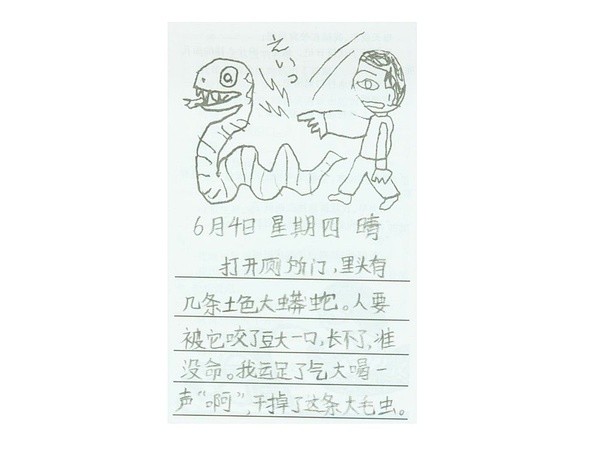 えいっ
6月4日 星期四 晴
打开厕所门,里头有
几条土色大蟒蛇。人要
被它咬了豆大一口,长不了,准
没命。我运足了气大喝一
声“啊”,干掉了这条大毛虫。